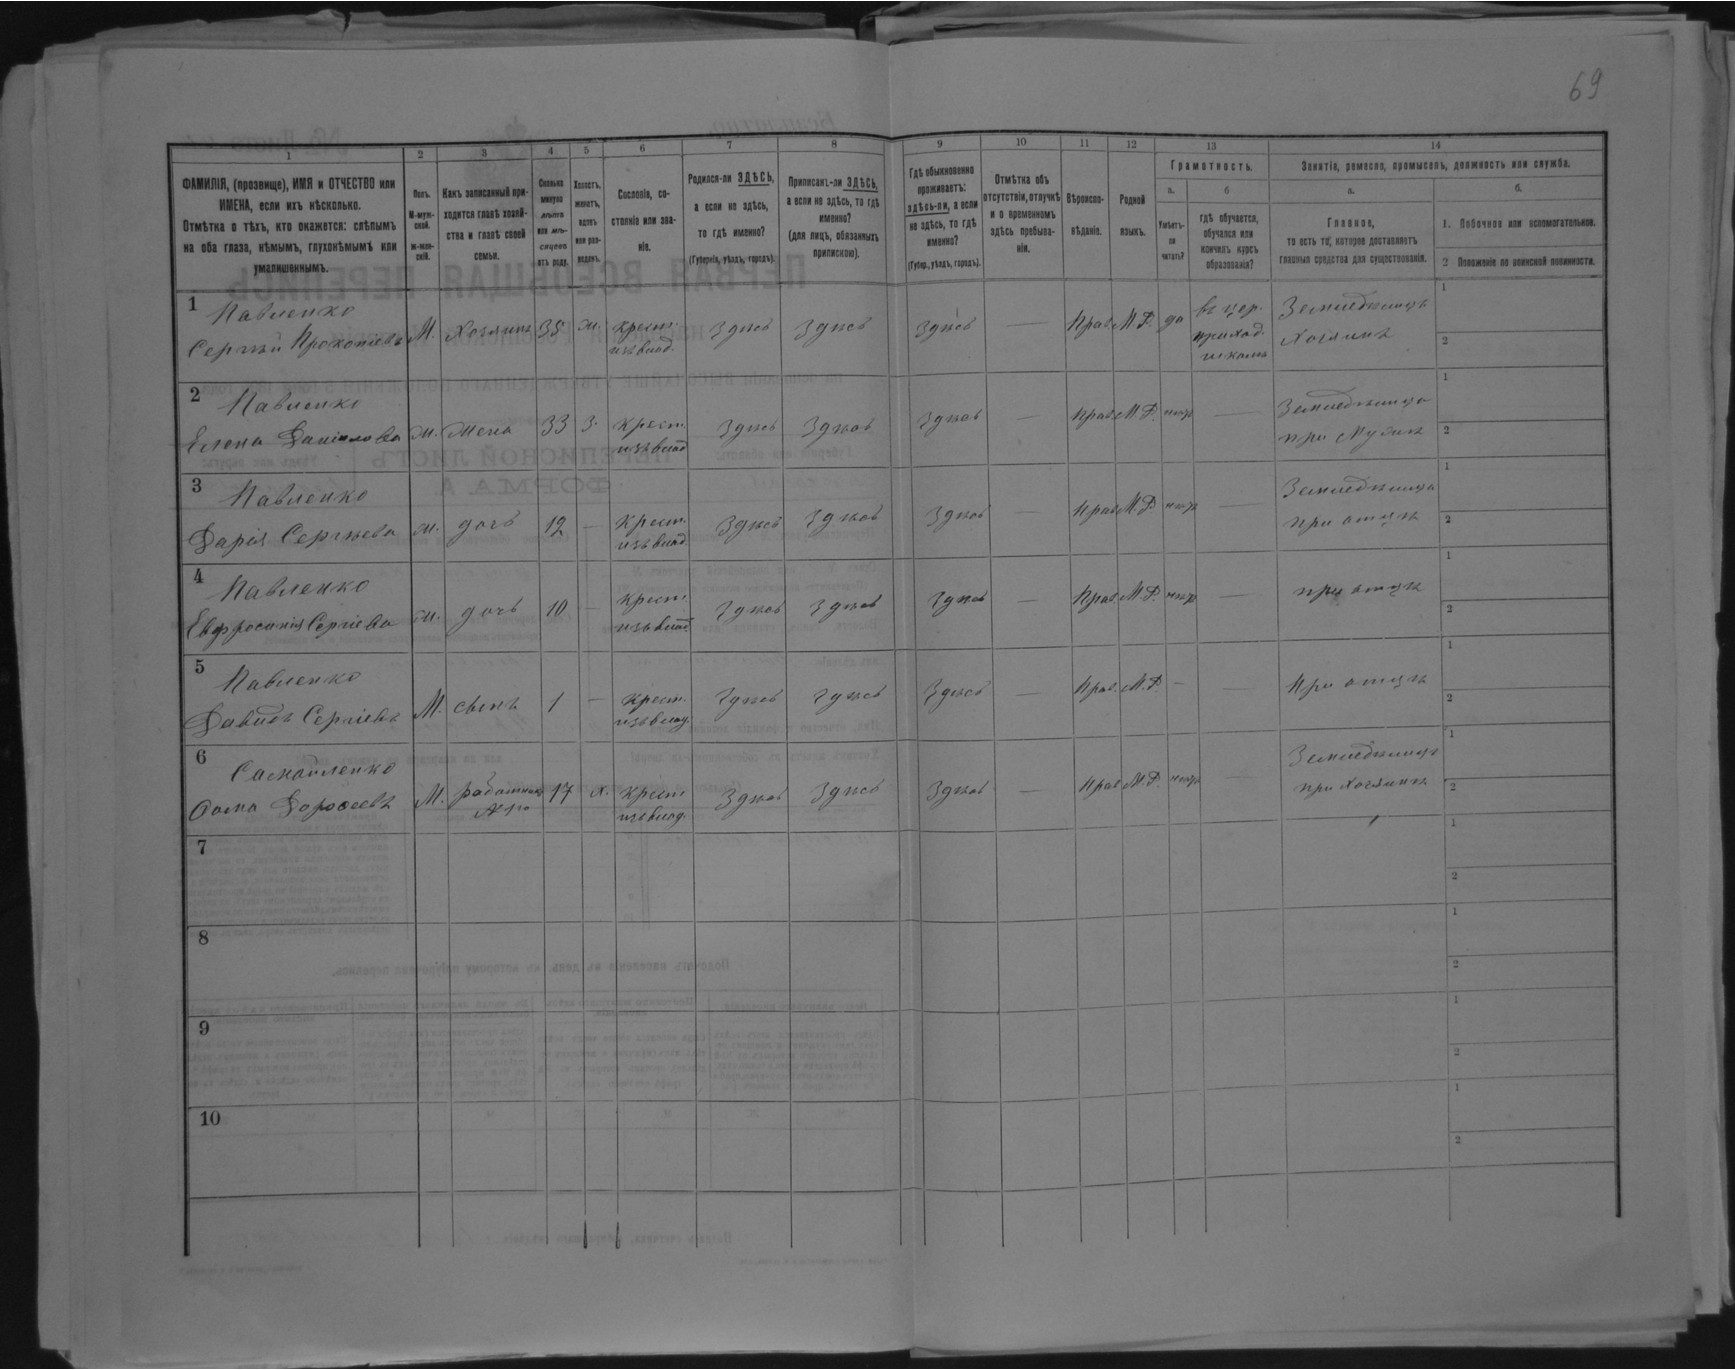 69
1 2 3 4 5 6 7 8 9 10 11 12 13 14
ФАМИЛІЯ, (прозвище), ИМЯ и ОТЧЕСТВО или
ИМЕНА, если ихъ нѣсколько.
Отмѣтка о тѣхъ, кто окажется: слѣпымъ
на оба глаза, нѣмымъ, глухонѣмымъ или
умалишеннымъ.
Полъ.
М-муж-
ской.
ж-жен-
скій.
Какъ записанный при-
ходится главѣ хозяй-
ства и главѣ своей
семьи.
Сколько
минуло
лѣтъ
или мѣ-
сяцевъ
отъ роду.
Холостъ,
женатъ,
вдовъ
или раз-
веденъ.
Сословіе, со-
стояніе или зва-
ніе.
Родился-ли ЗДѢСЬ,
а если не здѣсь,
то гдѣ именно?
(Губернія, уѣздъ, городъ).
Приписанъ-ли ЗДѢСЬ,
а если не здѣсь, то гдѣ
именно?
(для лицъ, обязанныхъ
припискою).
Гдѣ обыкновенно
проживаетъ:
здѣсь-ли, а если
не здѣсь, то гдѣ
именно?
(Губер., уѣздъ, городъ).
Отмѣтка объ
отсутствіи, отлучкѣ
и о временномъ
здѣсь пребыва-
ніи.
Вѣроиспо-
вѣданіе.
Родной
языкъ.
Грамотность.
а.
Умѣетъ-
ли
читать?
б
гдѣ обучается,
обучался или
кончилъ курсъ
образованія?
Занятіе, ремесло, промыселъ, должность или служба.
а.
Главное,
то есть то, которое доставляетъ
главныя средства для существованія.
б.
1. Побочное или вспомогательное.
2 Положеніе по воинской повинности.
1 Павленко
Сергѣй Прокопіевъ М. Хозяинъ 35 ж. Крест. изъ влад. Здѣсь Здѣсь Здѣсь — Прав. М.Р. да въ цер. приход. школѣ Земледѣлецъ Хозяинъ 1 2
2 Павленко
Елена Даніилова ж. жена 33 з. Крест. изъ влад Здѣсь Здѣсь Здѣсь — Прав. М.Р. нѣтъ — Земледѣлица при мужѣ 1 2
3 Павленко
Дарія Сергѣева ж. дочь 12 — Крест. изъ влад Здѣсь Здѣсь Здѣсь — Прав. М.Р. нѣтъ — Земледѣлица при отцѣ 1 2
4 Павленко
Евфросинія Сергіева ж. дочь 10 — Крест. изъ влад Здѣсь Здѣсь Здѣсь — Прав. М.Р. нѣтъ — при отцѣ 1 2
5 Павленко
Давидъ Сергіевъ М. сынъ 1 — Крест. изъ влад. Здѣсь Здѣсь Здѣсь — Прав. М.Р. — — При отцѣ 1 2
6 Самойленко
Ѳома Дороѳеевъ М. работникъ 17 х. Крест. изъ влад. Здѣсь Здѣсь Здѣсь — Прав. М.Р. нѣтъ — Земледѣлецъ при Хозяинѣ 1 2
7 1 2
8 1 2
9 1 2
10 1 2